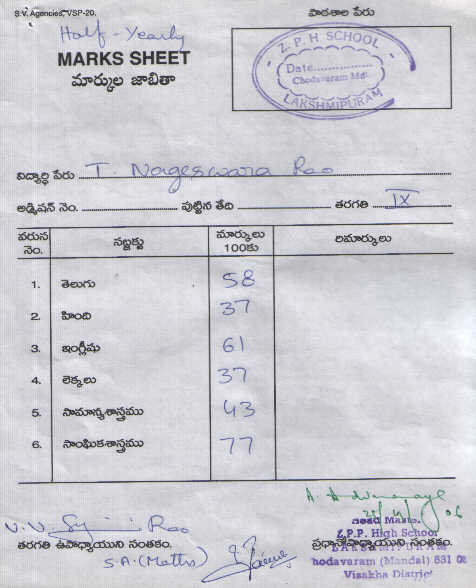 S.V. Agencies, VSP-20.
పాఠశాల పేరు
Half-Yearly
MARKS SHEET
మార్కుల జాబితా
Z.P.H SCHOOL
Date...............
Chodavaram Mdl.
LAKSHMIPURAM
విద్యార్థి పేరు T. Nageswara Rao
అడ్మిషన్ నెం. పుట్టిన తేది తరగతి IX
వరుస నెం. సబ్జక్టు మార్కులు 100కు రిమార్కులు
1. తెలుగు 58
2. హింది 37
3. ఇంగ్లీషు 61
4. లెక్కలు 37
5. సామాన్యశాస్త్రము 43
6. సాంఘికశాస్త్రము 77
Rao
Head Maste.
Z.P.P. High School
తరగతి ఉపాధ్యాయుని సంతకం. ప్రధానోపాధ్యాయుని సంతకం.
LAKSHMIPURAM
S.A. (Maths)
hodavaram (Mandal) 531 02
Visakha District